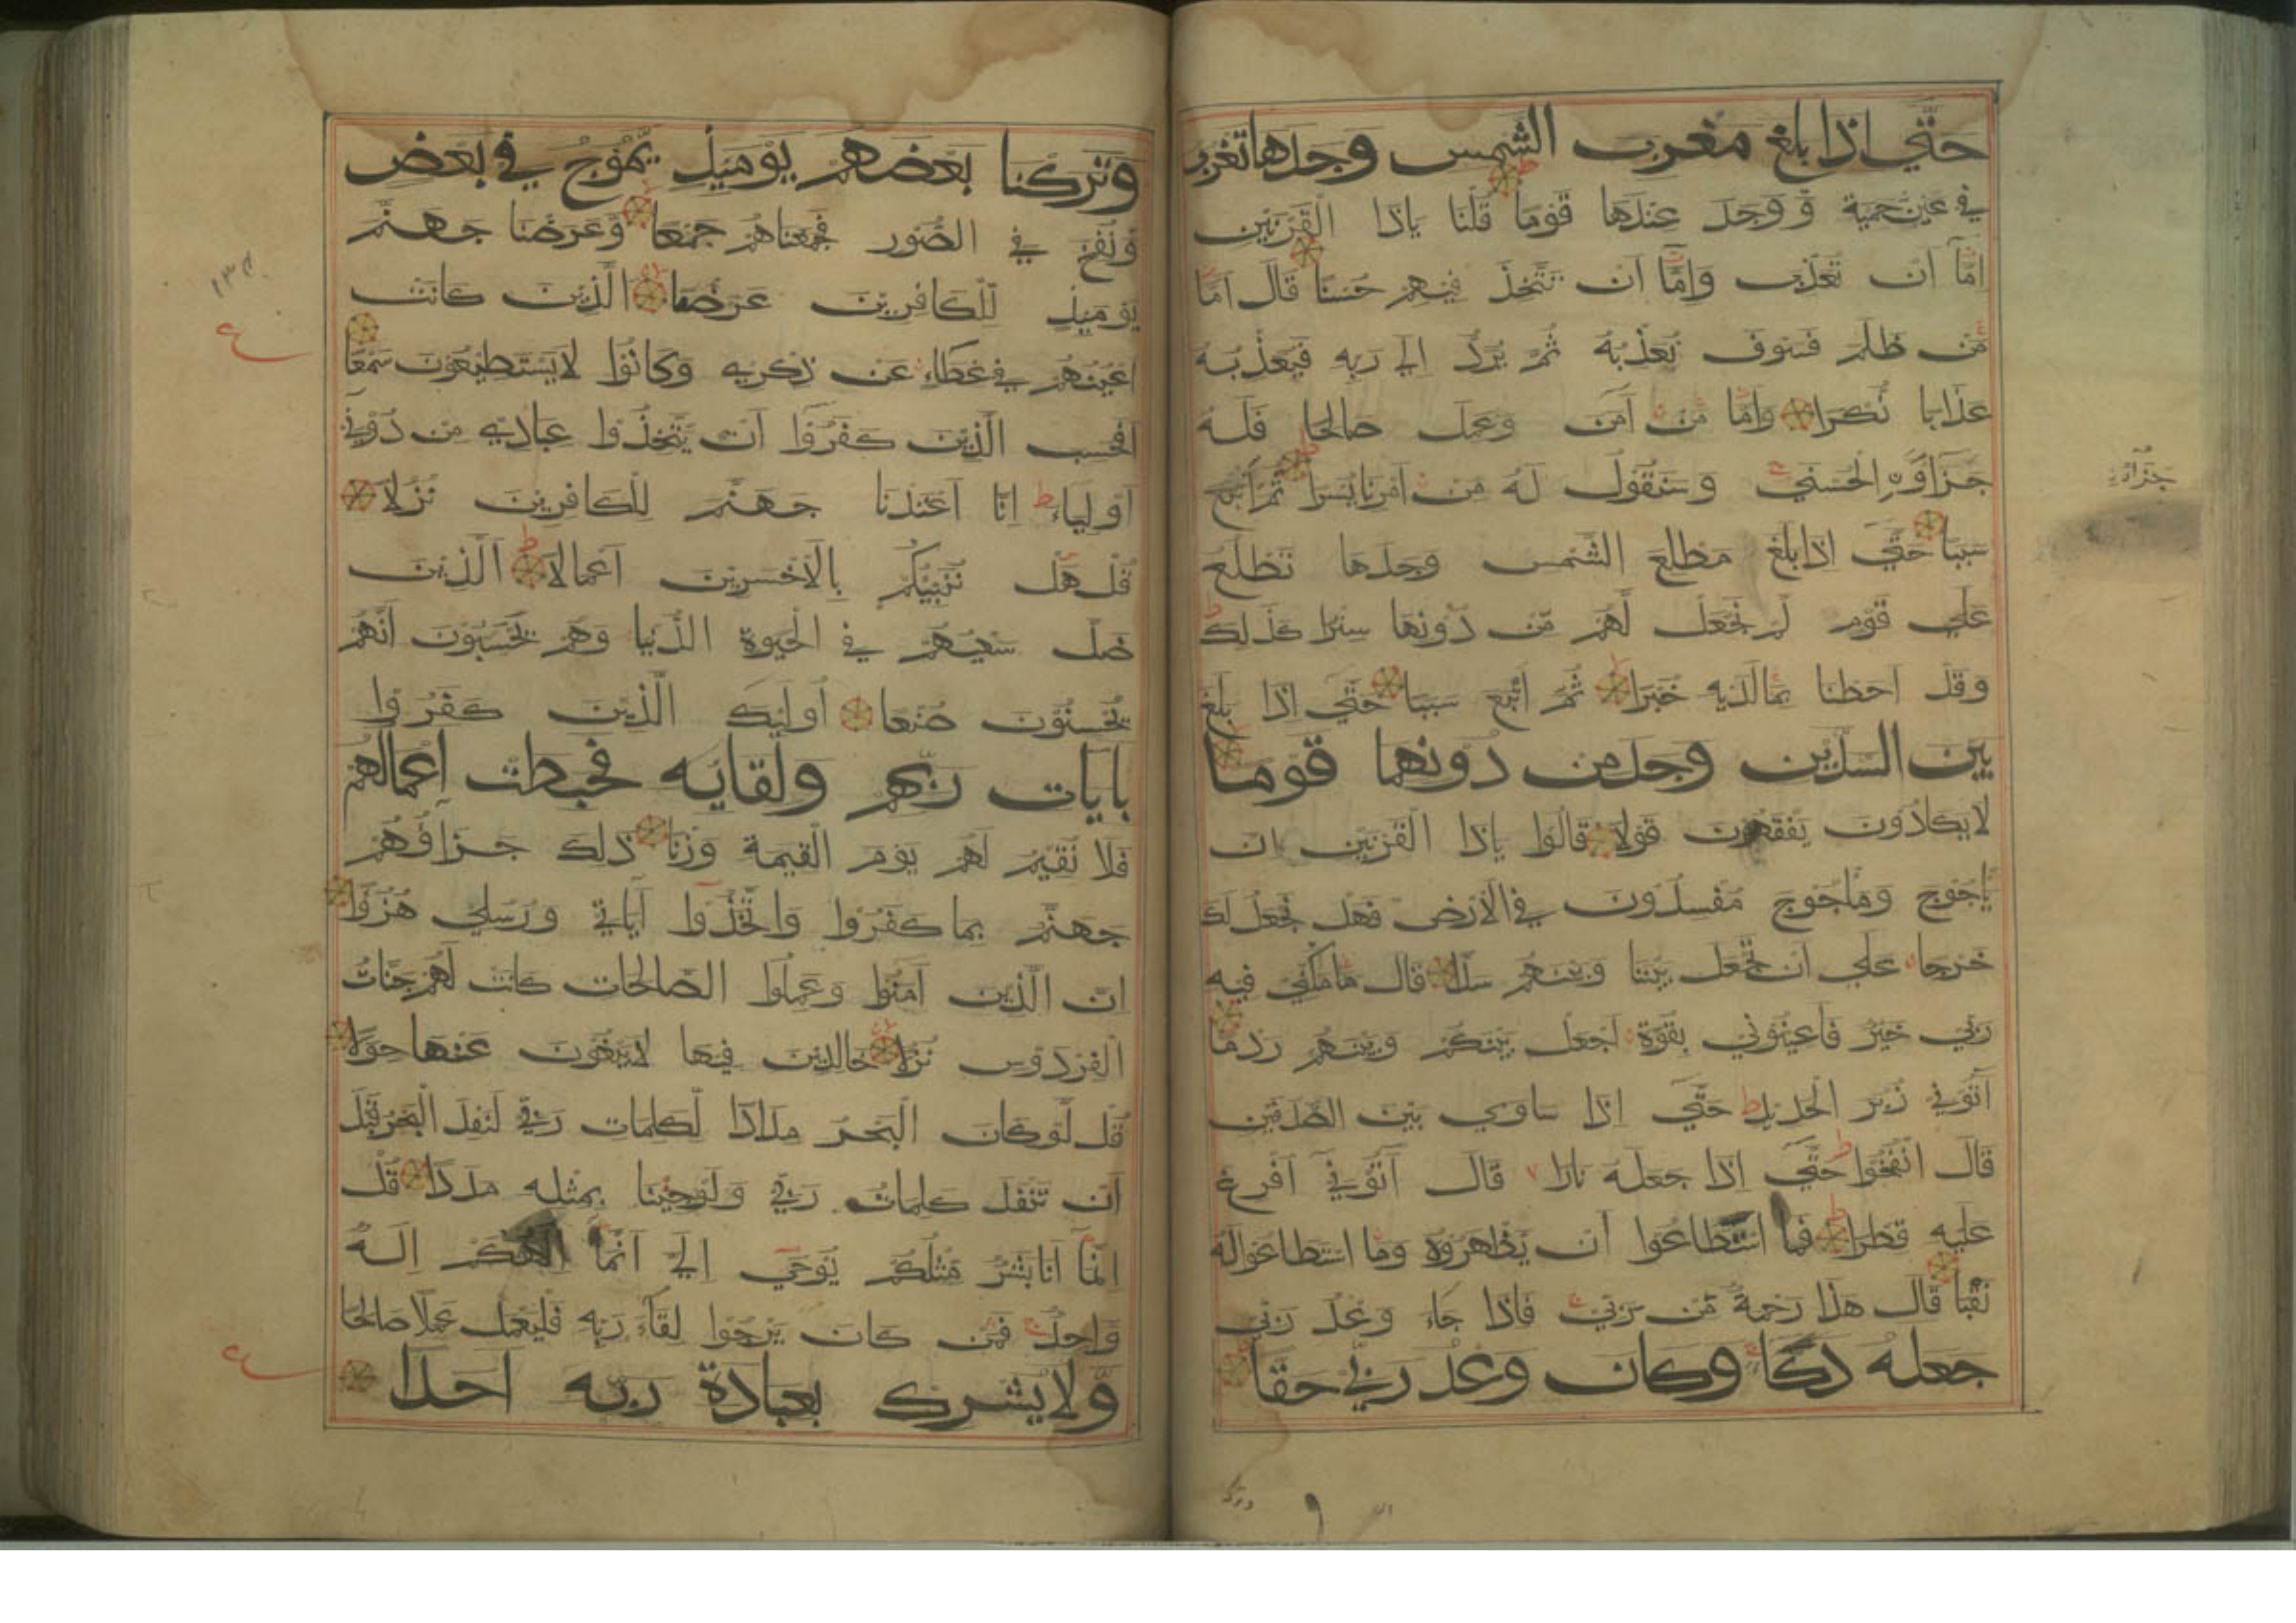 حتي اذا بلغ مغرب الشمس وجدها تغرب
في عين حمية ووجد عندها قوما قلنا ياذا القرنين
اما ان تعذب واما ان تتخذ فيهم حسنا قال اما
من ظلم فسوف نعذبه ثم يرد الي ربه فيعذبه
عذابا نكرا واما من آمن وعمل صالحا فله
جزاؤه الحسني وسنقول له من امرنا يسرا ثم اتبع
سببا حتي اذا بلغ مطلع الشمس وجدها تطلع
علي قوم لم نجعل لهم من دونها سترا كذلك
وقد احطنا بمالديه خبرا ثم اتبع سببا حتي اذا بلغ
بين السدين وجد من دونهما قوما
لا يكادون يفقهون قولا قالوا ياذا القرنين ان
ياجوج وماجوج مفسدون في الارض فهل نجعل لك
خرجا علي ان تجعل بيننا وبينهم سدا قال ما مكني فيه
ربي خير فاعينوني بقوة اجعل بينكم وبينهم ردما
آتوني زبر الحديد حتي اذا ساوي بين الصدفين
قال انفخوا حتي اذا جعله نارا قال آتوني افرغ
عليه قطرا فما اسطاعوا ان يظهروه وما استطاعوا له
نقبا قال هذا رحمة من ربي فاذا جاء وعد ربي
جعله دكا وكان وعد ربي حقا
وتركنا بعضهم يوميذ يموج في بعض
ونفخ في الصور فجمعناهم جمعا وعرضنا جهنم
يوميذ للكافرين عرضا الذين كانت
اعينهم في غطاء عن ذكري وكانوا لا يستطيعون سمعا
افحسب الذين كفروا ان يتخذوا عبادي من دوني
اولياء انا اعتدنا جهنم للكافرين نزلا
قل هل ننبيكم بالاخسرين اعمالا الذين
ضل سعيهم في الحيوة الدنيا وهم يحسبون انهم
يحسنون صنعا اوليك الذين كفروا
بايات ربهم ولقايه فحبطت اعمالهم
فلا نقيم لهم يوم القيمة وزنا ذلك جزاؤهم
جهنم بما كفروا واتخذوا آياتي ورسلي هزوا
ان الذين آمنوا وعملوا الصالحات كانت لهم جنات
الفردوس نزلا خالدين فيها لا يبغون عنها حولا
قل لو كان البحر مدادا لكلمات ربي لنفد البحر قبل
ان تنفد كلمات ربي ولوجئنا بمثله مددا قل
انما انا بشر مثلكم يوحي الي انما الهكم اله
واحد فمن كان يرجوا لقاء ربه فليعمل عملا صالحا
ولا يشرك بعبادة ربه احدا